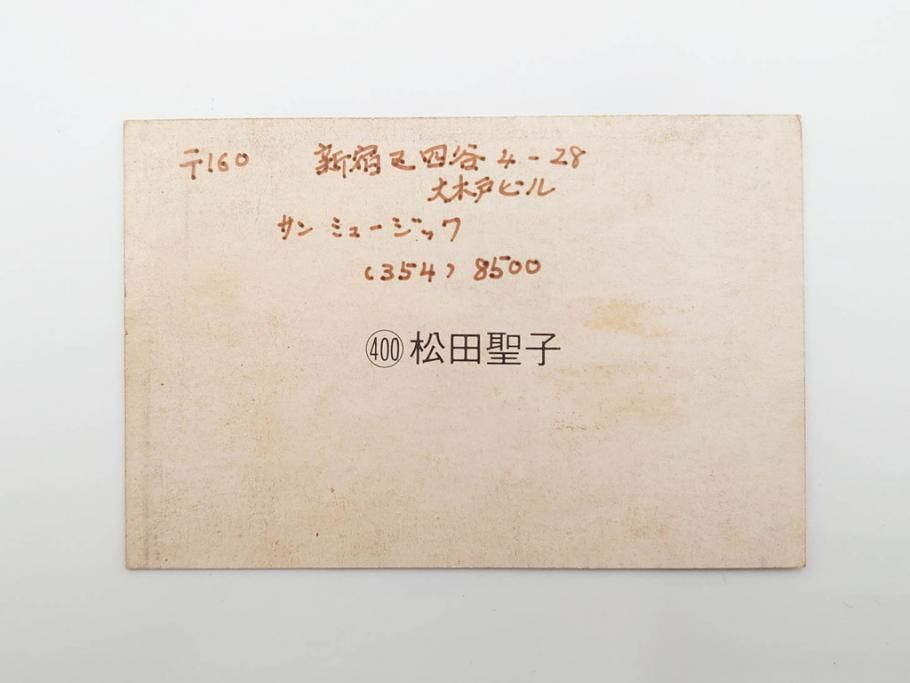 〒160 新宿区四谷4-28
大木戸ビル
サンミュージック
(354) 8500
㊵⓪ 松田聖子